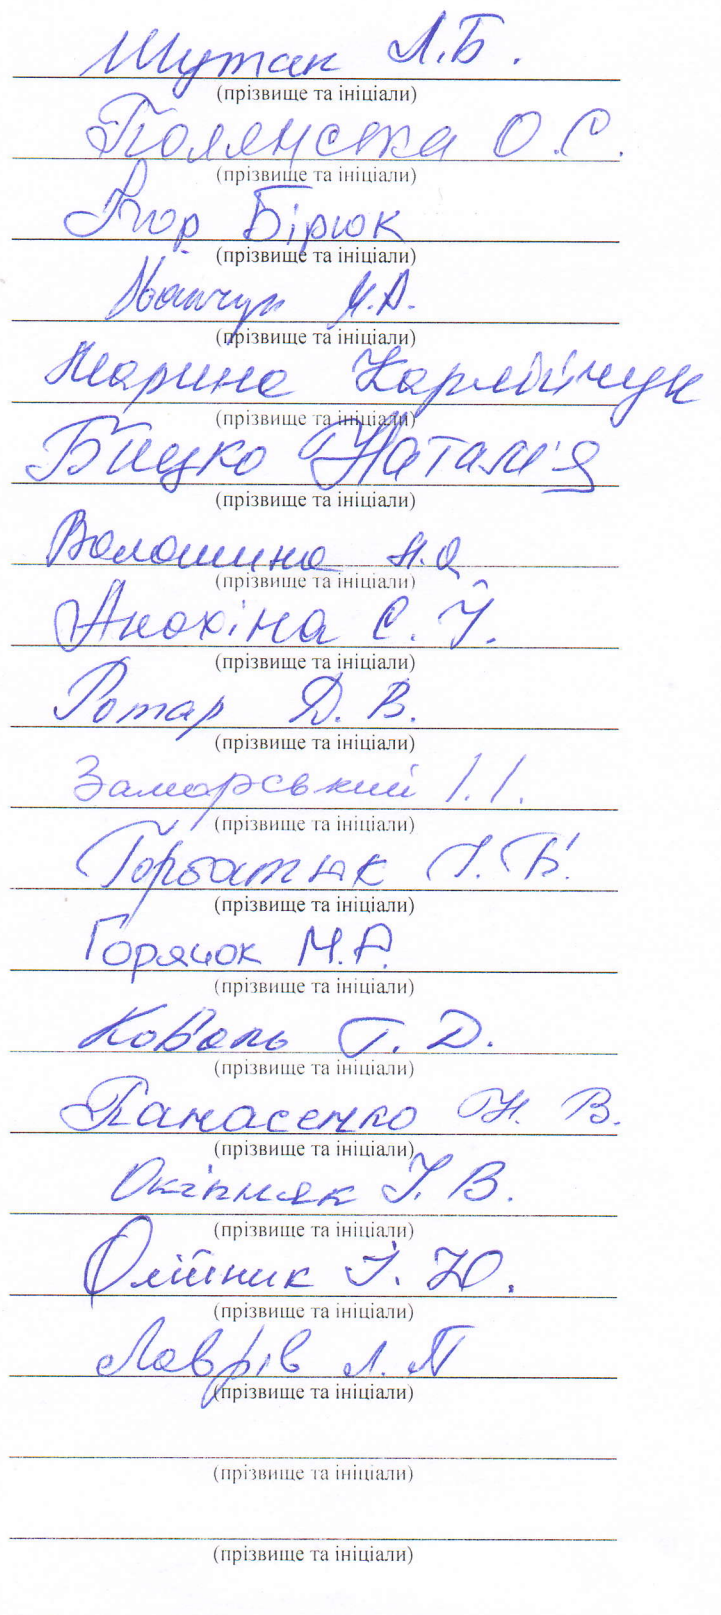 Шутак Л.Б.
(прізвище та ініціали)
Полянська О.С.
(прізвище та ініціали)
Ігор Бірюк
(прізвище та ініціали)
Іванчук М.А.
(прізвище та ініціали)
Марина Карлійчук
(прізвище та ініціали)
Бицко Наталія
(прізвище та ініціали)
Волошина Л.О
(прізвище та ініціали)
Анохіна С. І.
(прізвище та ініціали)
Ротар Д. В.
(прізвище та ініціали)
Заморський І.І.
(прізвище та ініціали)
Горбатюк І. Б.
(прізвище та ініціали)
Горячок М.А.
(прізвище та ініціали)
Коваль Г. Д.
(прізвище та ініціали)
Панасенко Н. В.
(прізвище та ініціали)
Окіпняк І. В.
(прізвище та ініціали)
Олійник І. Ю.
(прізвище та ініціали)
Лаврів Л. П
(прізвище та ініціали)
(прізвище та ініціали)
(прізвище та ініціали)